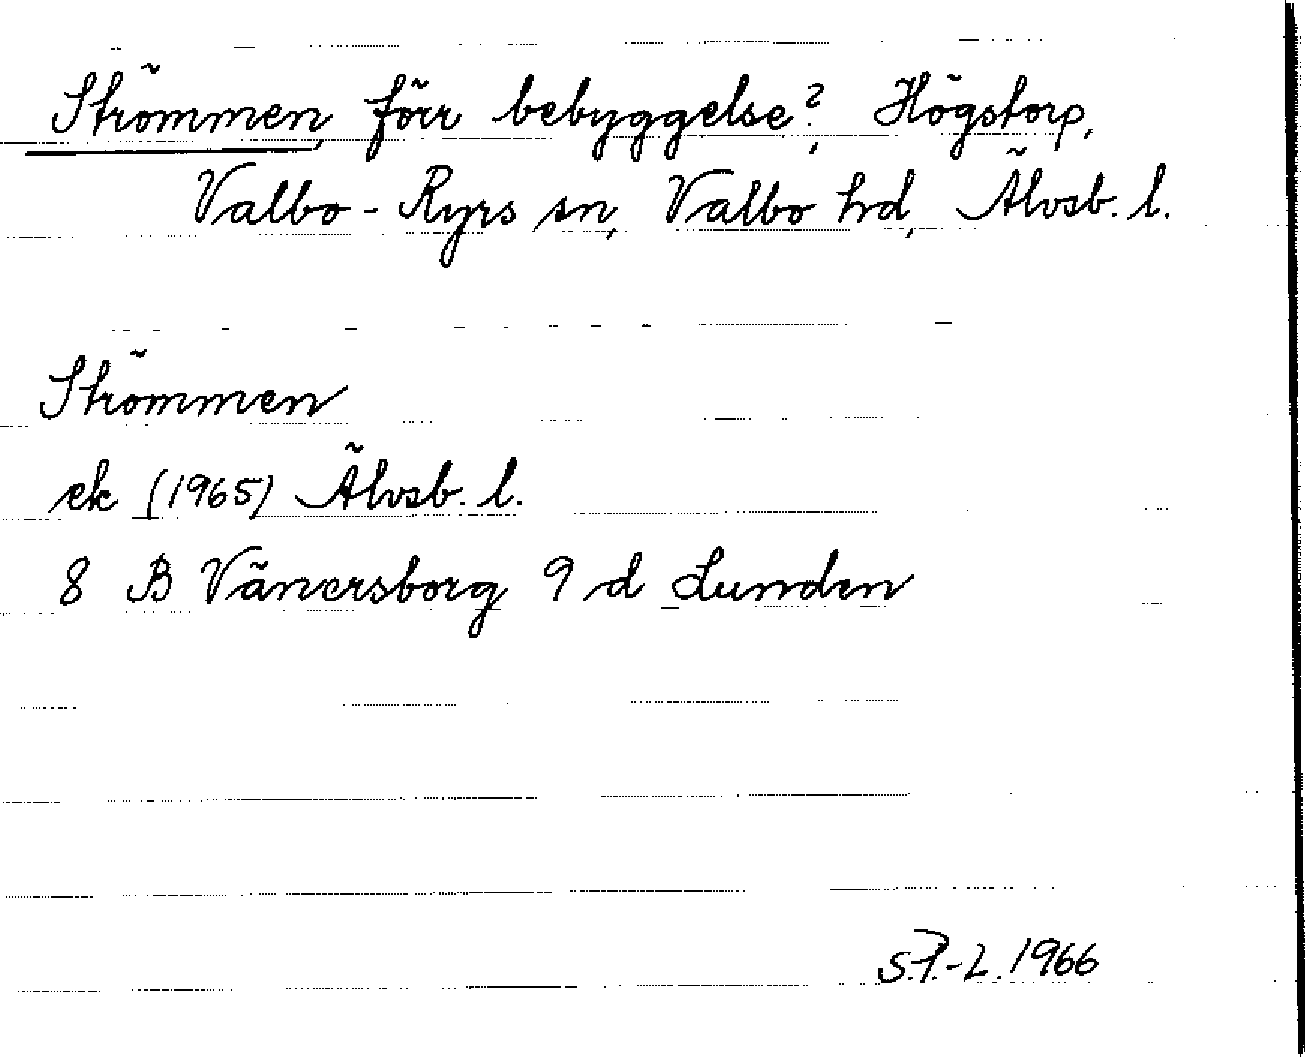 Strömmen, förr bebyggelse?, Högstorp,
Valbo-Ryrs sn, Valbo hd, Älvsb. l.
Strömmen
ek (1965) Älvsb. l.
8 B Vänersborg 9 d Lunden
S.P.-L. 1966